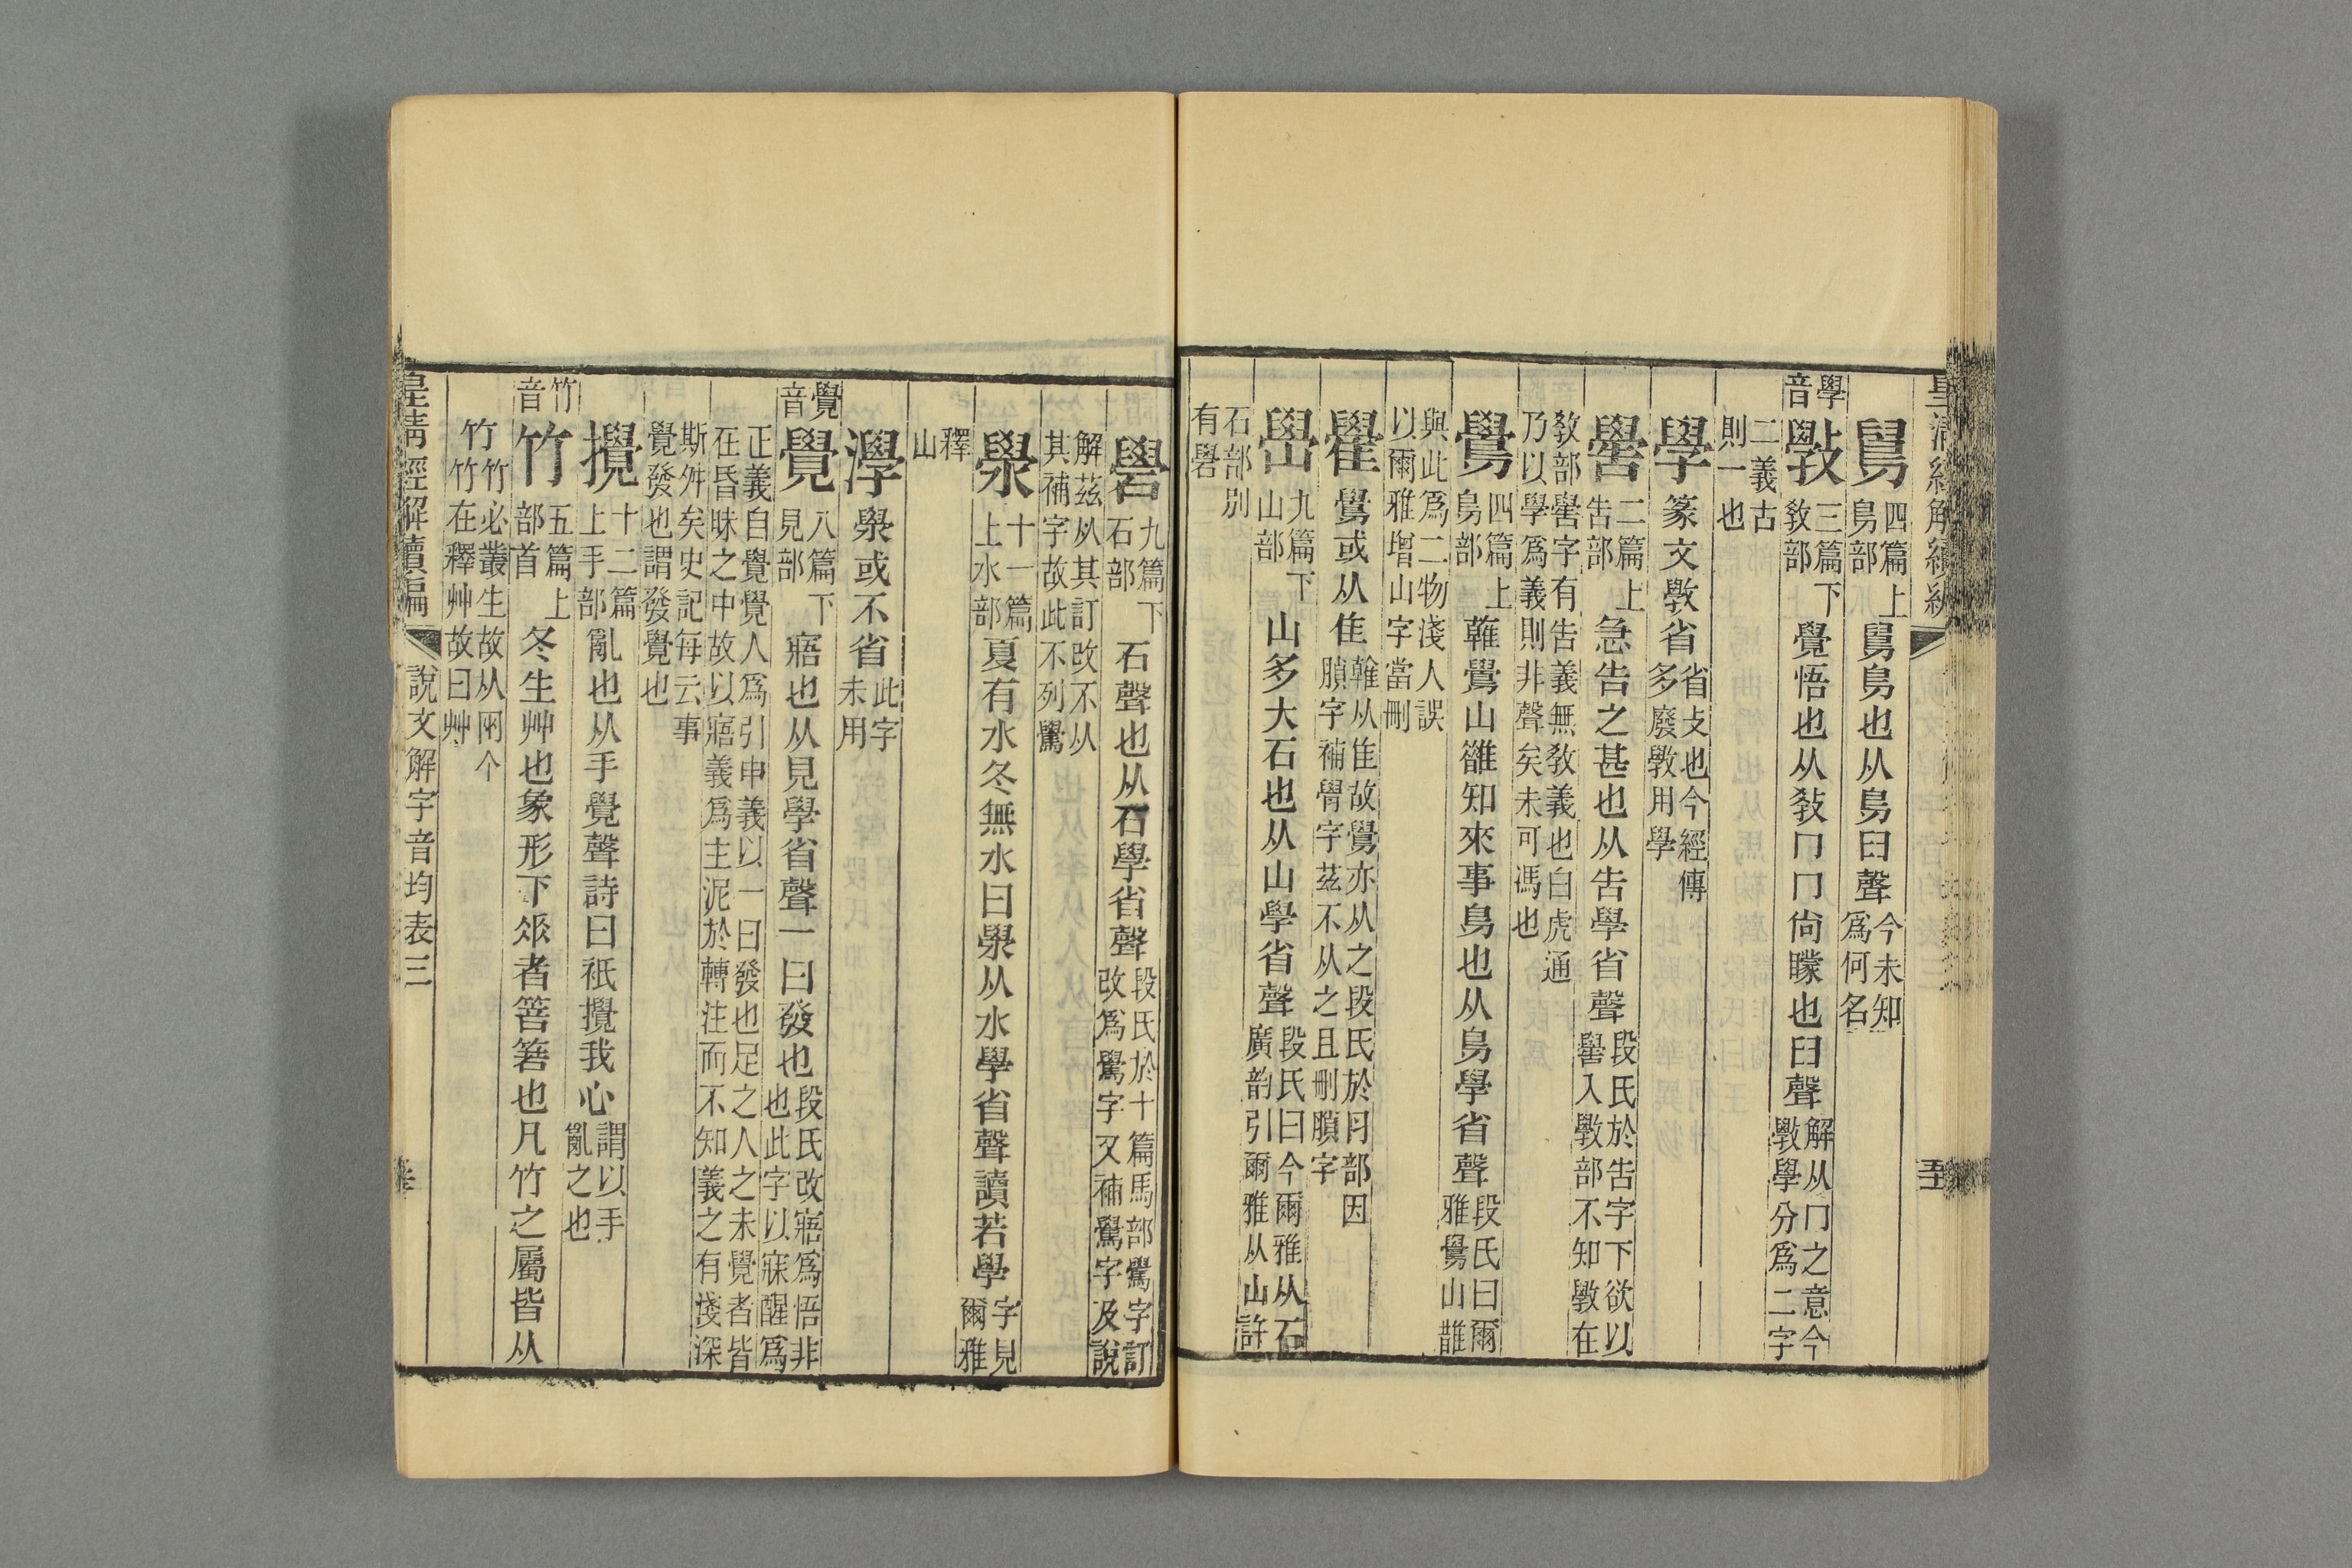 皇清經解續編
舄 四篇上舄部 舄舃也从舃臼聲 今未知爲何名
學音 斆 三篇下敎部 覺悟也从敎冂冂尙矇也臼聲 解从冂之意今斆學分爲二字
二義古則一也
學 篆文斆省 省攴也今經傳多廢斆用學
嚳 二篇上告部 急告之甚也从告學省聲 段氏於告字下欲以嚳入斆部不知斆在
敎部嚳字有告義無敎義也白虎通乃以學爲義則非聲矣未可馮也
鷽 四篇上鳥部 雗鷽山雒知來事鳥也从鳥學省聲 段氏曰爾雅鷽山鵲
與此爲二物淺人誤以爾雅增山字當刪
雤 鷽或从隹 雗从隹故鷽亦从之段氏於肉部因膭字補臂字茲不从之且刪膭字
嶨 九篇下山部 山多大石也从山學省聲 段氏曰今爾雅从石廣韵引爾雅从山許
石部別有礐
礐 九篇下石部 石聲也从石學省聲 段氏於十篇馬部鷽字訂改爲鷽字又補鷽字及說
解茲从其訂改不从其補字故此不列鷽
澩 十一篇上水部 夏有水冬無水曰澩从水學省聲讀若學 字見爾雅
釋山
灂 澩或不省 此字未用
覺音 覺 八篇下見部 寤也从見學省聲一曰發也 段氏改寤爲悟非也此字以寐醒爲
正義自覺覺人爲引申義以一曰發也足之人之未覺者皆在昏昧之中故以寤義爲主泥於轉注而不知義之有淺深
斯舛矣史記每云事覺發也謂發覺也
攪 十二篇上手部 亂也从手覺聲詩曰祇攪我心 謂以手亂之也
竹音 竹 五篇上部首 冬生艸也象形下𠂹者箁箬也凡竹之屬皆从
竹 竹必叢生故从兩个竹在釋艸故曰艸
皇清經解續編 說文解字音均表三